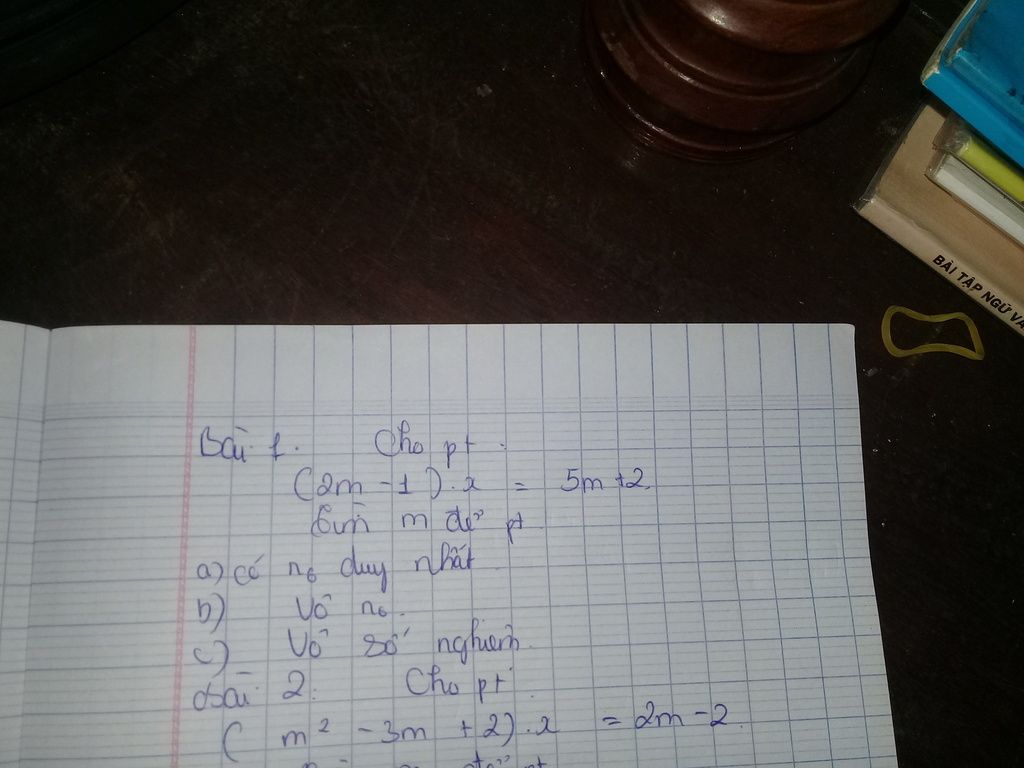 BÀI TẬP NGỮ VĂ
Bài 1. Cho pt.
(2m - 1).x = 5m+2.
Tìm m để pt
a) có no duy nhất
b) Vô no.
c) Vô số nghiệm.
Bài 2. Cho pt.
( m² - 3m + 2).x = 2m - 2.
m để pt